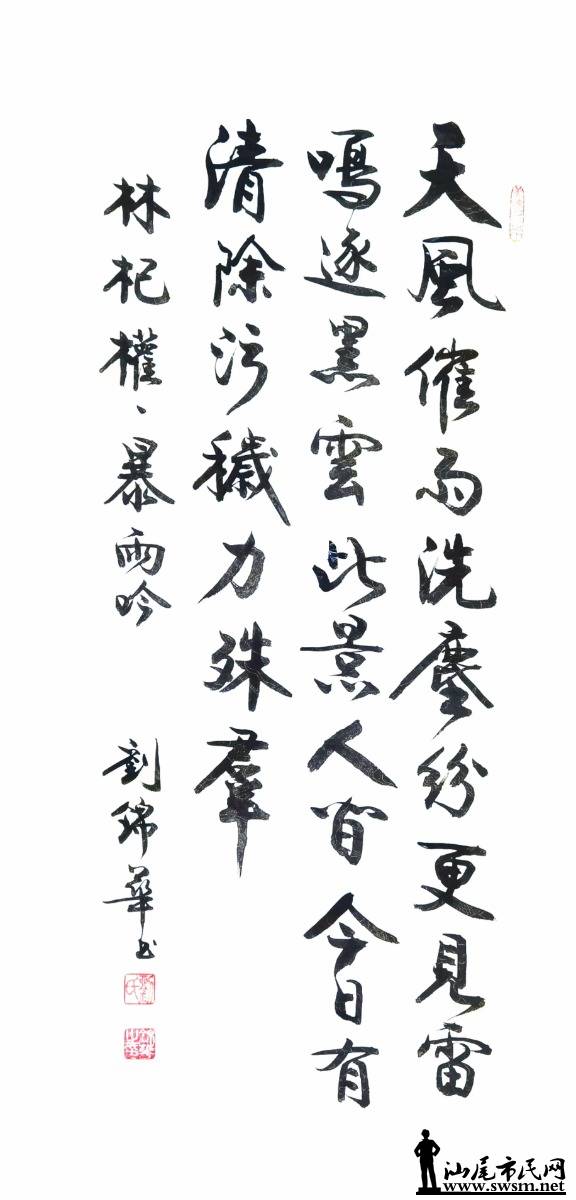 天風催雨洗塵紛更見雷
鳴逐黑雲此景人間今日有
清除污穢力殊羣
林杞權、暴雨吟
劉錦華書
汕尾市民网
www.swsm.net